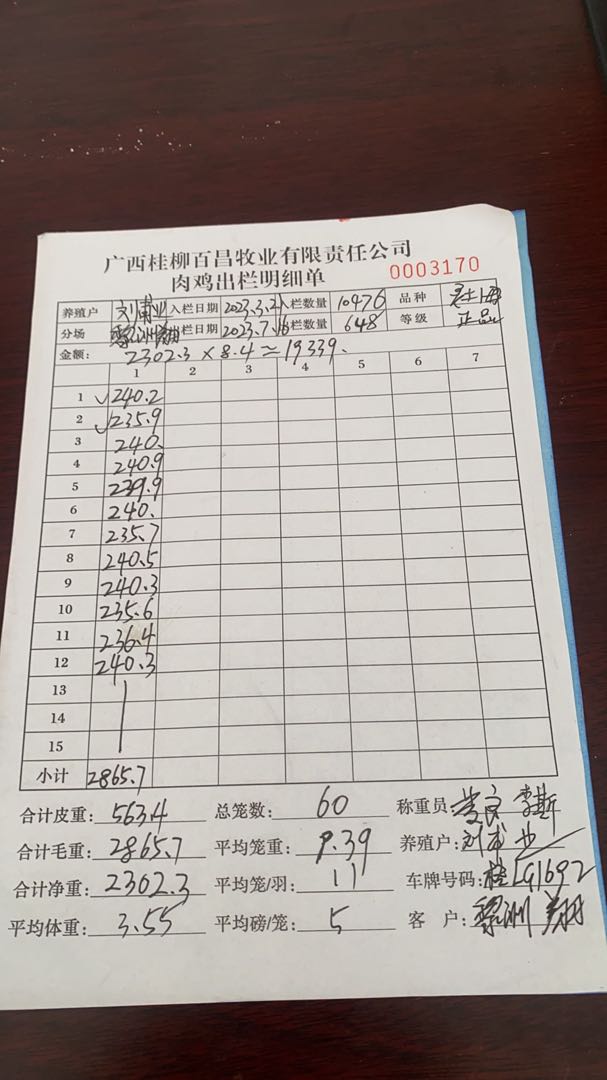 广西桂柳百昌牧业有限责任公司
肉鸡出栏明细单
0003170
养殖户 刘甫业 入栏日期 2023.3.21 入栏数量 10476 品种 土
分场 黎洲翔 栏日期 2023.7.16 栏数量 648 等级 正品
金额: 2302.3 × 8.4 ≈ 19339.
1 2 3 4 5 6 7
1 √240.2
2 √235.9
3 240.
4 240.9
5 239.9
6 240.
7 235.7
8 240.5
9 240.3
10 235.6
11 236.4
12 240.3
13
14
15
小计 2865.7
合计皮重: 563.4 总笼数: 60 称重员: 李斯
合计毛重: 2865.7 平均笼重: 9.39 养殖户: 刘甫业
合计净重: 2302.3 平均笼/羽: 11 车牌号码: 桂LG1692
平均体重: 3.55 平均磅/笼: 5 客 户: 黎洲翔